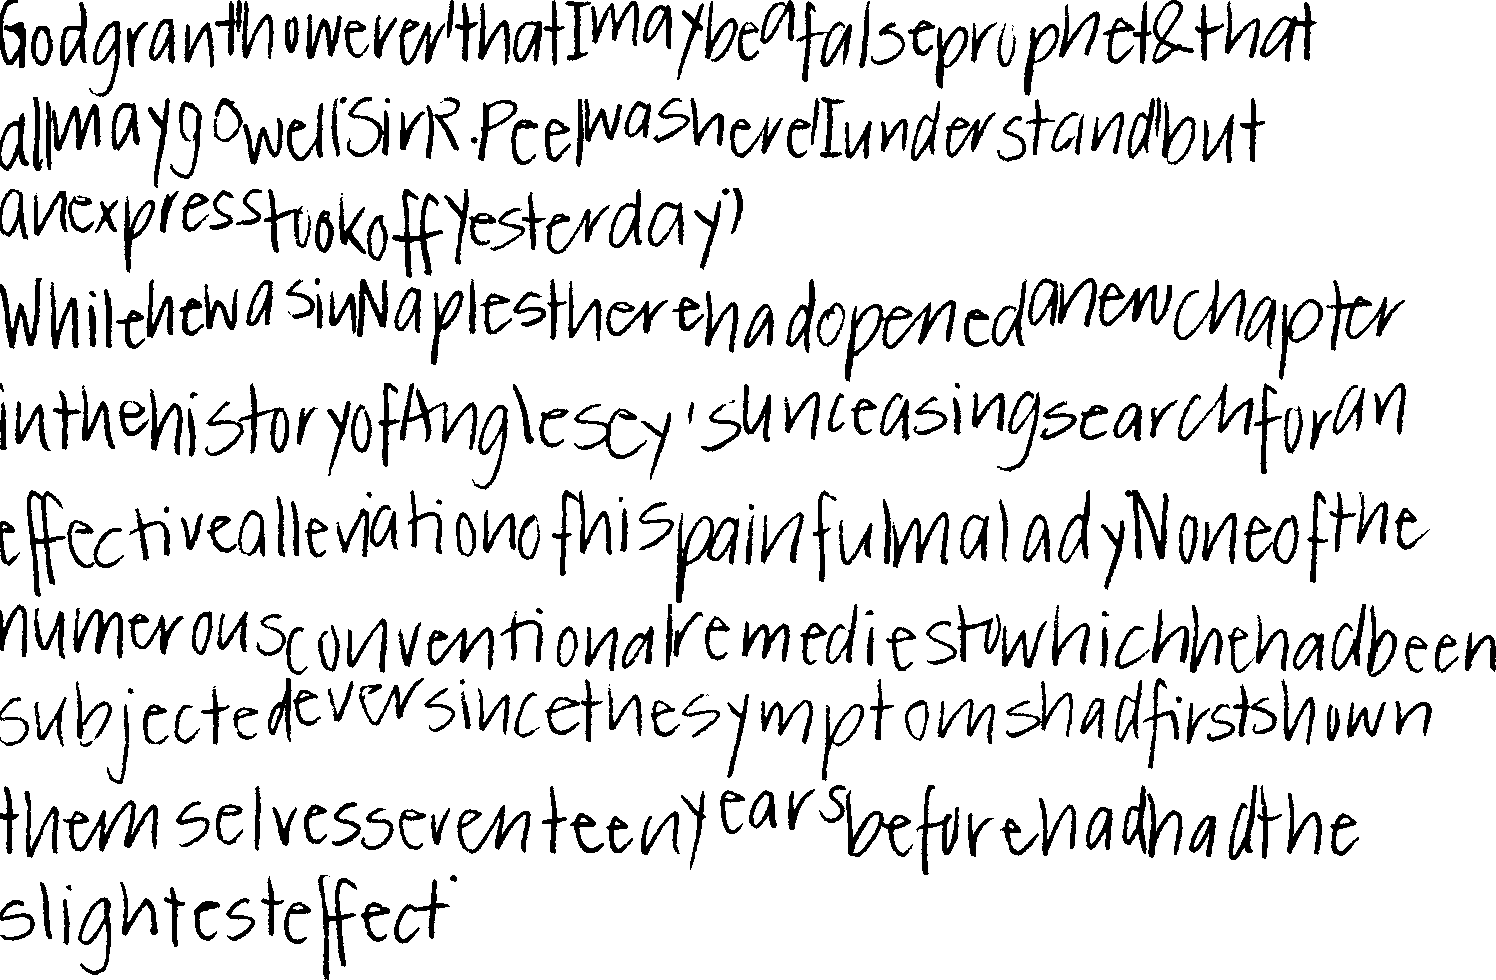 God grant however that I may be a false prophet & that
all may go well (Sir R. Peel was here I understand but
an express took off yesterday)
While he was in Naples there had opened a new chapter
in the history of Anglesey's unceasing search for an
effective alleviation of his painful malady None of the
numerous conventional remedies to which he had been
subjected ever since the symptoms had first shown
themselves seventeen years before had had the
slightest effect.